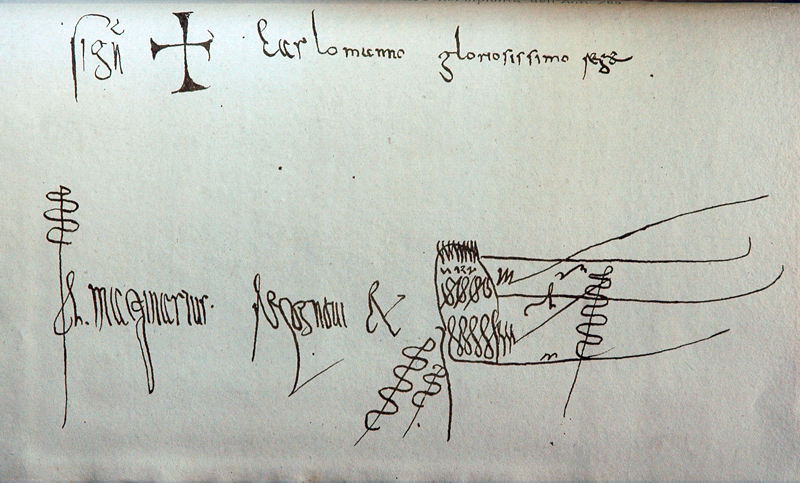 signū Carlomanno gloriosissimo rege
Maginarius recognovi &